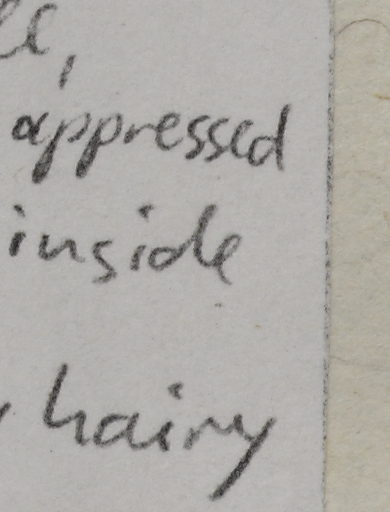 appressed
inside
hairy